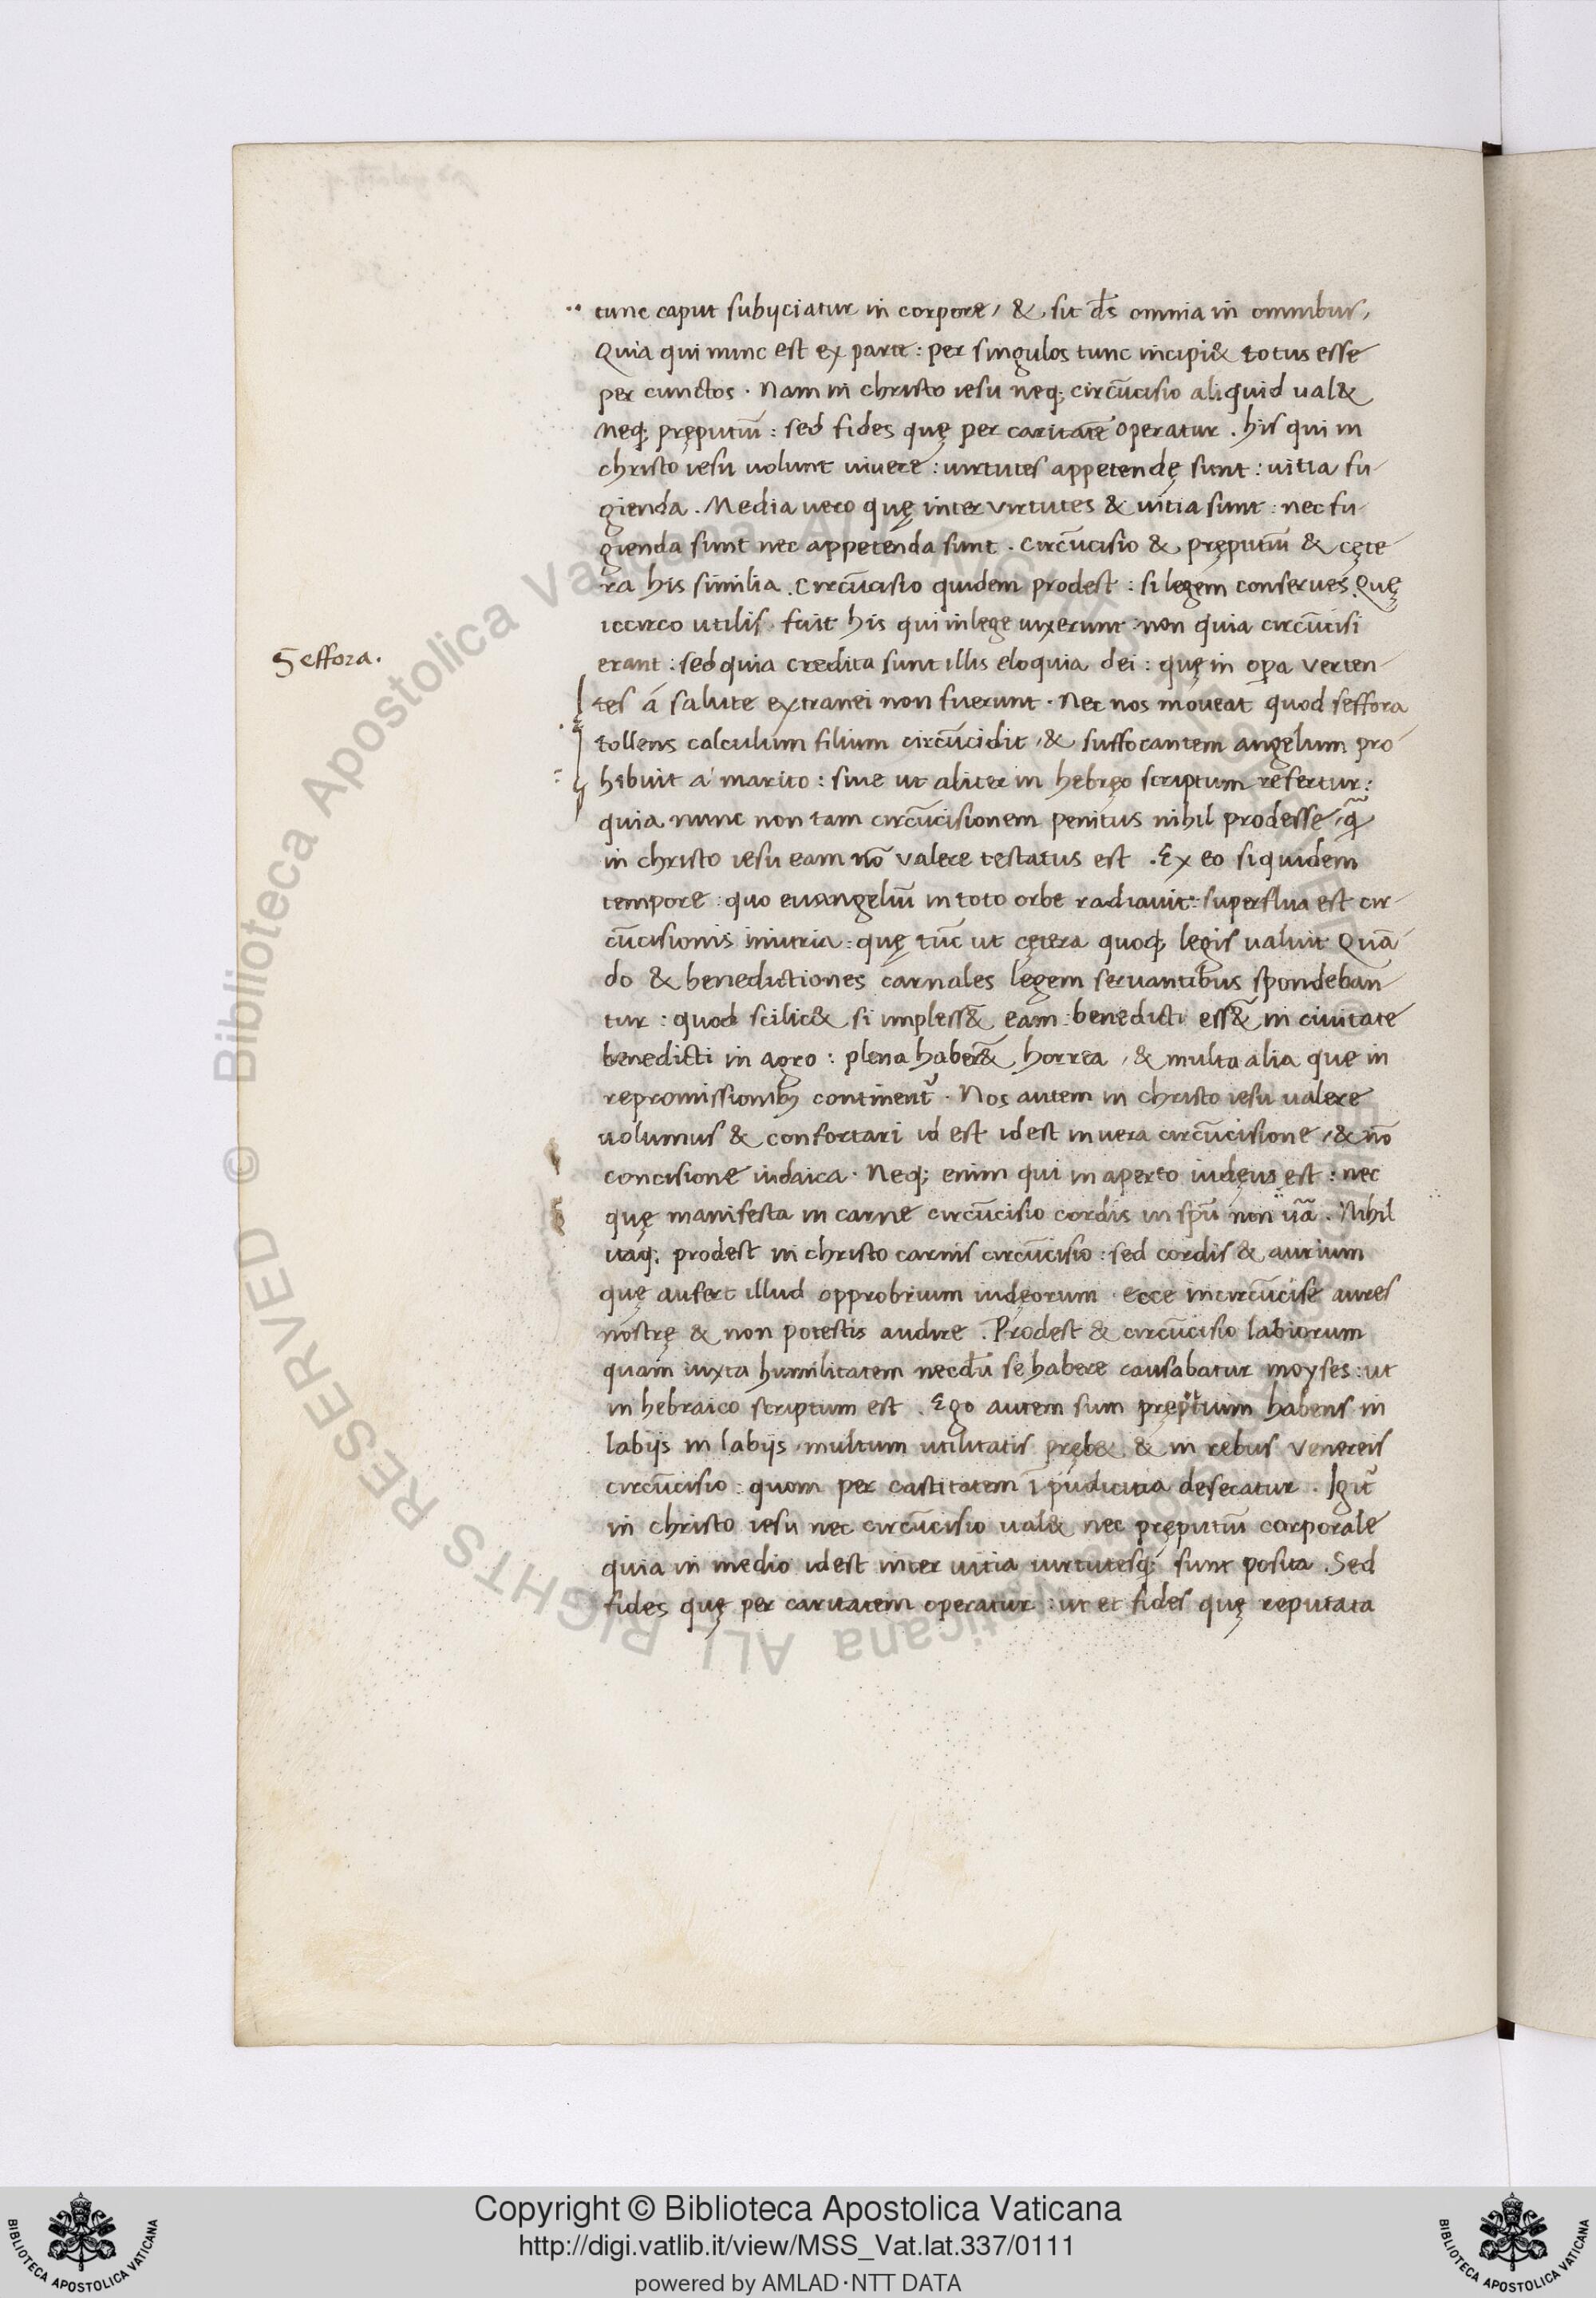 tunc caput subijciatur in corpore, & sit d̄s omnia in omnibus,
Quia qui nunc est ex parte : per singulos tunc incipi& totus esse
per cunctos . Nam in christo iesu neq; circūcisio aliquid ual&
Neq; pręputiū : sed fides quę per caritatē operatur . his qui in
christo iesu uolunt uiuere : uirtutes appetendę sunt : uitia fu-
gienda . Media uero quę inter virtutes & uitia sunt : nec fu-
gienda sunt nec appetenda sunt . Circūcisio & pręputiū & cęte-
ra his similia . Circūcisio quidem prodest : si legem conserues . Quę
iccirco utilis fuit his qui in lege uixerunt : non quia circūcisi
Seffora.
erant : sed quia credita sunt illis eloquia dei : quę in oꝑa verten-
tes á salute extranei non fuerunt . Nec nos moueat quod seffora
tollens calculum filium circūcidit , & suffocantem angelum pro-
hibuit a' marito : siue ut aliter in hebręo scriptum refertur :
quia nunc non tam circūcisionem penitus nihil prodesse , q̄
in christo iesu eam nō valere testatus est . Ex eo siquidem
tempore : quo euangeliū in toto orbe radiauit : superflua est cir-
cūcisionis iniuria : quę tūc ut cętera quoq; legis ualuit Quā-
do & benedictiones carnales legem seruantibus spondeban-
tur : quod scilic& si impless&̄ eam : benedicti ess&̄ in ciuitate
benedicti in agro : plena haber&̄ horrea , & multa alia quę in
repromissionibꝫ continent᷑ . Nos autem in christo iesu ualere
uolumus & confortari id est idest in uera circūcisione , & nō
concisione iudaica . Neq; enim qui in aperto iudęus est : nec
quę manifesta in carne circūcisio cordis in sp̄u non ūā . Nihil
itaq; prodest in christo carnis circūcisio : sed cordis & aurium
quę aufert illud opprobrium iudęorum . ecce incircūcise aures
nostrę & non potestis audire . Prodest & circūcisio labiorum
quam iuxta humilitatem necdū se habere causabatur moyses : ut
in hebraico scriptum est . Ego autem sum pręputium habens in
labijs in labijs multum utilitatis pręb& & in rebus venereis
circūcisio : quom per castitatem ī pudicitia desecatur . Igit᷑
in christo iesu nec circūcisio ual& nec pręputiū corporale
quia in medio idest inter uitia uirtutesq; sunt posita . Sed
fides quę per caritatem operatur : ut et fides quę reputata
© Biblioteca Apostolica Vaticana ALL RIGHTS RESERVED
Copyright © Biblioteca Apostolica Vaticana
http://digi.vatlib.it/view/MSS_Vat.lat.337/0111
powered by AMLAD·NTT DATA
BIBLIOTECA APOSTOLICA VATICANA
BIBLIOTECA APOSTOLICA VATICANA